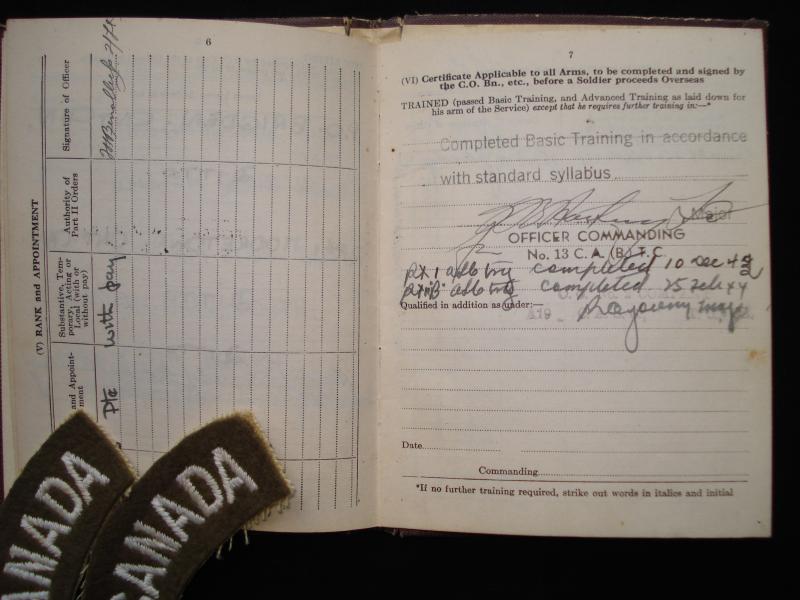 6
(V) RANK and APPOINTMENT
and Appoint-
ment
Substantive, Tem-
porary, Acting or
Local (with or
without pay)
Authority of
Part II Orders
Signature of Officer
Pte with pay
7
(VI) Certificate Applicable to all Arms, to be completed and signed by
the C.O. Bn., etc., before a Soldier proceeds Overseas
TRAINED (passed Basic Training, and Advanced Training as laid down for
his arm of the Service) except that he requires further training in:—*
Completed Basic Training in accordance
with standard syllabus
Major
OFFICER COMMANDING
No. 13 C. A. (B.) T.C.
completed 10 Dec
completed 25 Feb 44
Qualified in addition as under:—
Date
Commanding
*If no further training required, strike out words in italics and initial
ANADA
CANADA